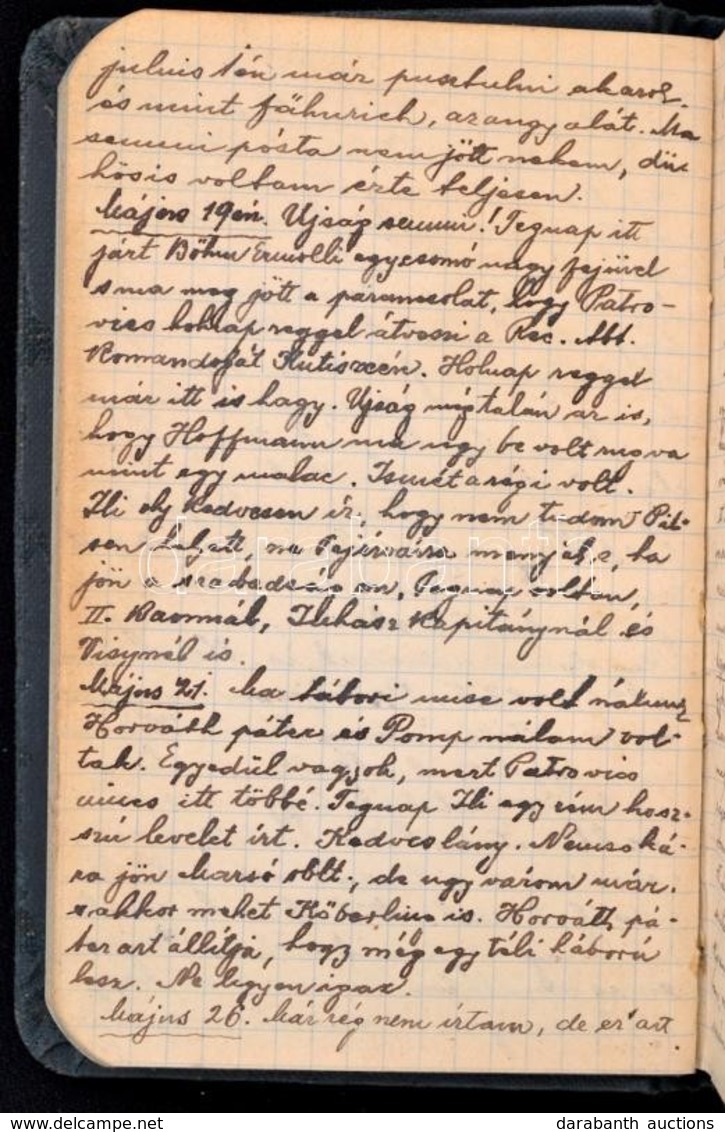 julius 1én már pusztulni akarok.
és mint fähnrich, az angyalát. Ma
semmi pósta nem jött nekem, dü-
hös is voltam érte teljesen.
Május 19én. Ujság semmi! Tegnap itt
járt Böhm Ermolli egy csomó nagy fejüvel
s ma meg jött a parancsolat, hogy Petro-
vics holnap reggel átveszi a Rec. Abt.
Komandóját Kutiscén. Holnap reggel
már itt is hagy. Ujság még talán az is,
hogy Hoffmann ma ugy be volt rugva
mint egy malac. Ismét a régi volt.
Ili oly kedvesen ír, hogy nem tudom Pil-
sen helyett, ne Fejérvárra menjek e, ha
jön a szabadságom. Tegnap voltam,
II. Baonnál, Juhász kapitánynál és
Visynél is.
Május 21. Ma tábori mise volt nálunk
Horváth páter és Pomp nálam vol-
tak. Egyedül vagyok, mert Petrovics
nincs itt többé. Tegnap Ili egy rém hosz-
szú levelet írt. Kedves lány. Nemsoká-
ra jön Marsó oblt., de ugy várom már.
s akkor mehet Köberling is. Horváth pá-
ter azt állítja, hogy még egy téli háború
lesz. Ne legyen igaz.
Május 26. Már rég nem írtam, de ez azt
darabanth
www.darabanth.com
darabanth auctions